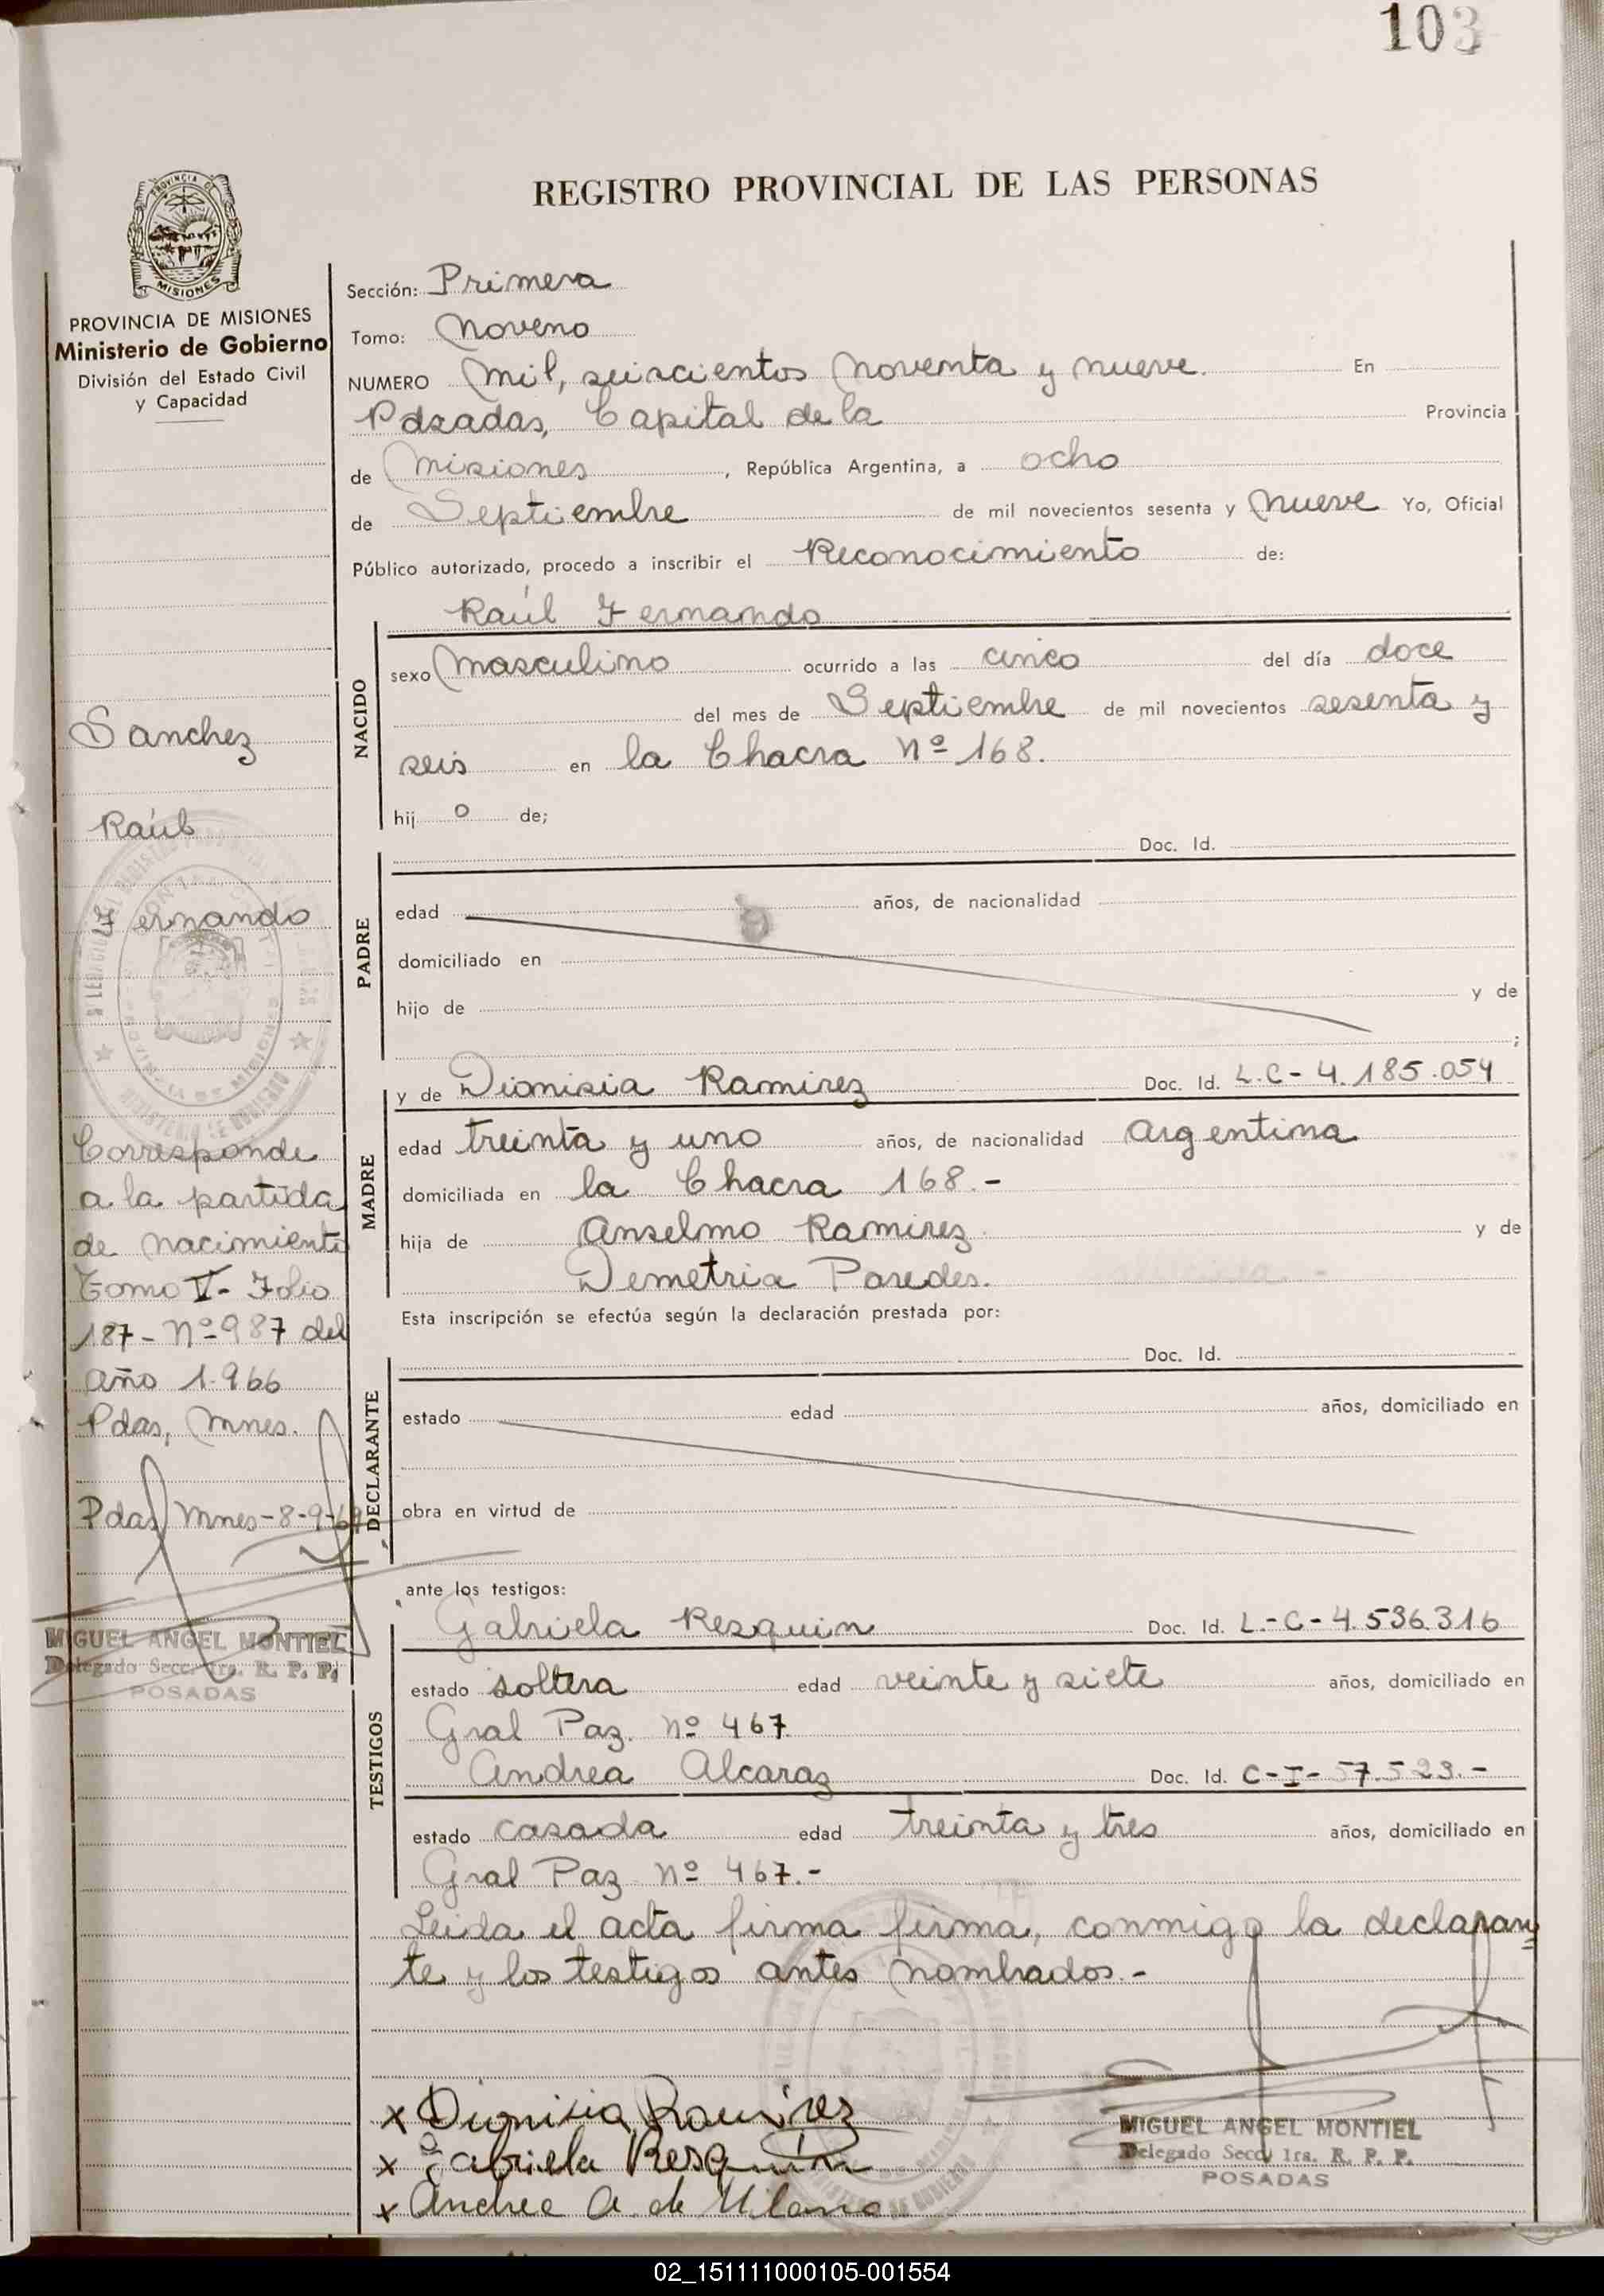 103
REGISTRO PROVINCIAL DE LAS PERSONAS
PROVINCIA DE MISIONES
Ministerio de Gobierno
División del Estado Civil
y Capacidad
Sección: Primera
Tomo: Noveno
NUMERO Mil, seiscientos Noventa y nueve. En
Posadas, Capital de la Provincia
de Misiones, República Argentina, a ocho
de Septiembre de mil novecientos sesenta y Nueve Yo, Oficial
Público autorizado, procedo a inscribir el Reconocimiento de:
Raúl Fernando
NACIDO
sexo Masculino ocurrido a las cinco del día doce
del mes de Septiembre de mil novecientos sesenta y
seis en la Chacra Nº 168.
hij o de;
Doc. Id.
PADRE
edad años, de nacionalidad
domiciliado en
hijo de y de
;
MADRE
y de Dionisia Ramirez Doc. Id. L.C- 4.185.054
edad treinta y uno años, de nacionalidad Argentina
domiciliada en la Chacra 168.-
hija de Anselmo Ramirez y de
Demetria Paredes.
Esta inscripción se efectúa según la declaración prestada por:
Doc. Id.
DECLARANTE
estado edad años, domiciliado en
obra en virtud de
ante los testigos:
TESTIGOS
Gabriela Resquin Doc. Id. L.-C-4.536.316
estado soltera edad veinte y siete años, domiciliado en
Gral Paz. nº 467
Andrea Alcaraz Doc. Id. C-I-57.523.-
estado casada edad treinta y tres años, domiciliado en
Gral Paz nº 467.-
Leida el acta firma firma, conmigo la declaran
te y los testigos antes nombrados.-
x Dionisia Ramirez
x Gabriela Resquin
x Andrea A. de
MIGUEL ANGEL MONTIEL
Delegado Secc. 1ra. R. P. P.
POSADAS
Sanchez
Raúl
Fernando
Corresponde
a la partida
de Nacimiento
Tomo V- Folio
187- Nº 987 del
año 1.966
Pdas, Mnes.
Pdas Mnes-8-9-69
MIGUEL ANGEL MONTIEL
Delegado Secc. 1ra. R. P. P.
POSADAS
02_151111000105-001554